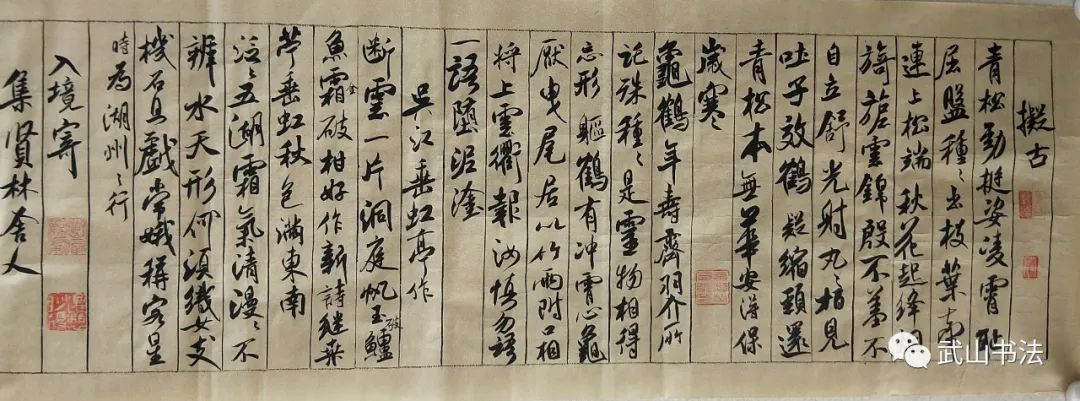 擬古
青松勁挺姿凌霄恥
屈盤種〻出枝葉牽
連上松端秋花起絳烟
旖旎雲錦殷不羞不
自立舒光射丸〻柏見
吐子效鶴疑縮頸還
青松本無華安得保
歲寒
龜鶴年壽齊羽介所
託殊種〻是靈物相得
忘形軀鶴有冲霄心龜
厭曳尾居以竹兩附口相
將上雲衢報汝慎勿語
一語墮泥塗
吳江垂虹亭作
断雲一片洞庭帆玉破鱸
魚霜金破柑好作新詩繼桑
苧垂虹秋色滿東南
泛〻五湖霜氣清漫〻不
辨水天形何須織女支
機石且戲常娥稱客星
時為湖州之行
入境寄
集賢林舍人
武山书法